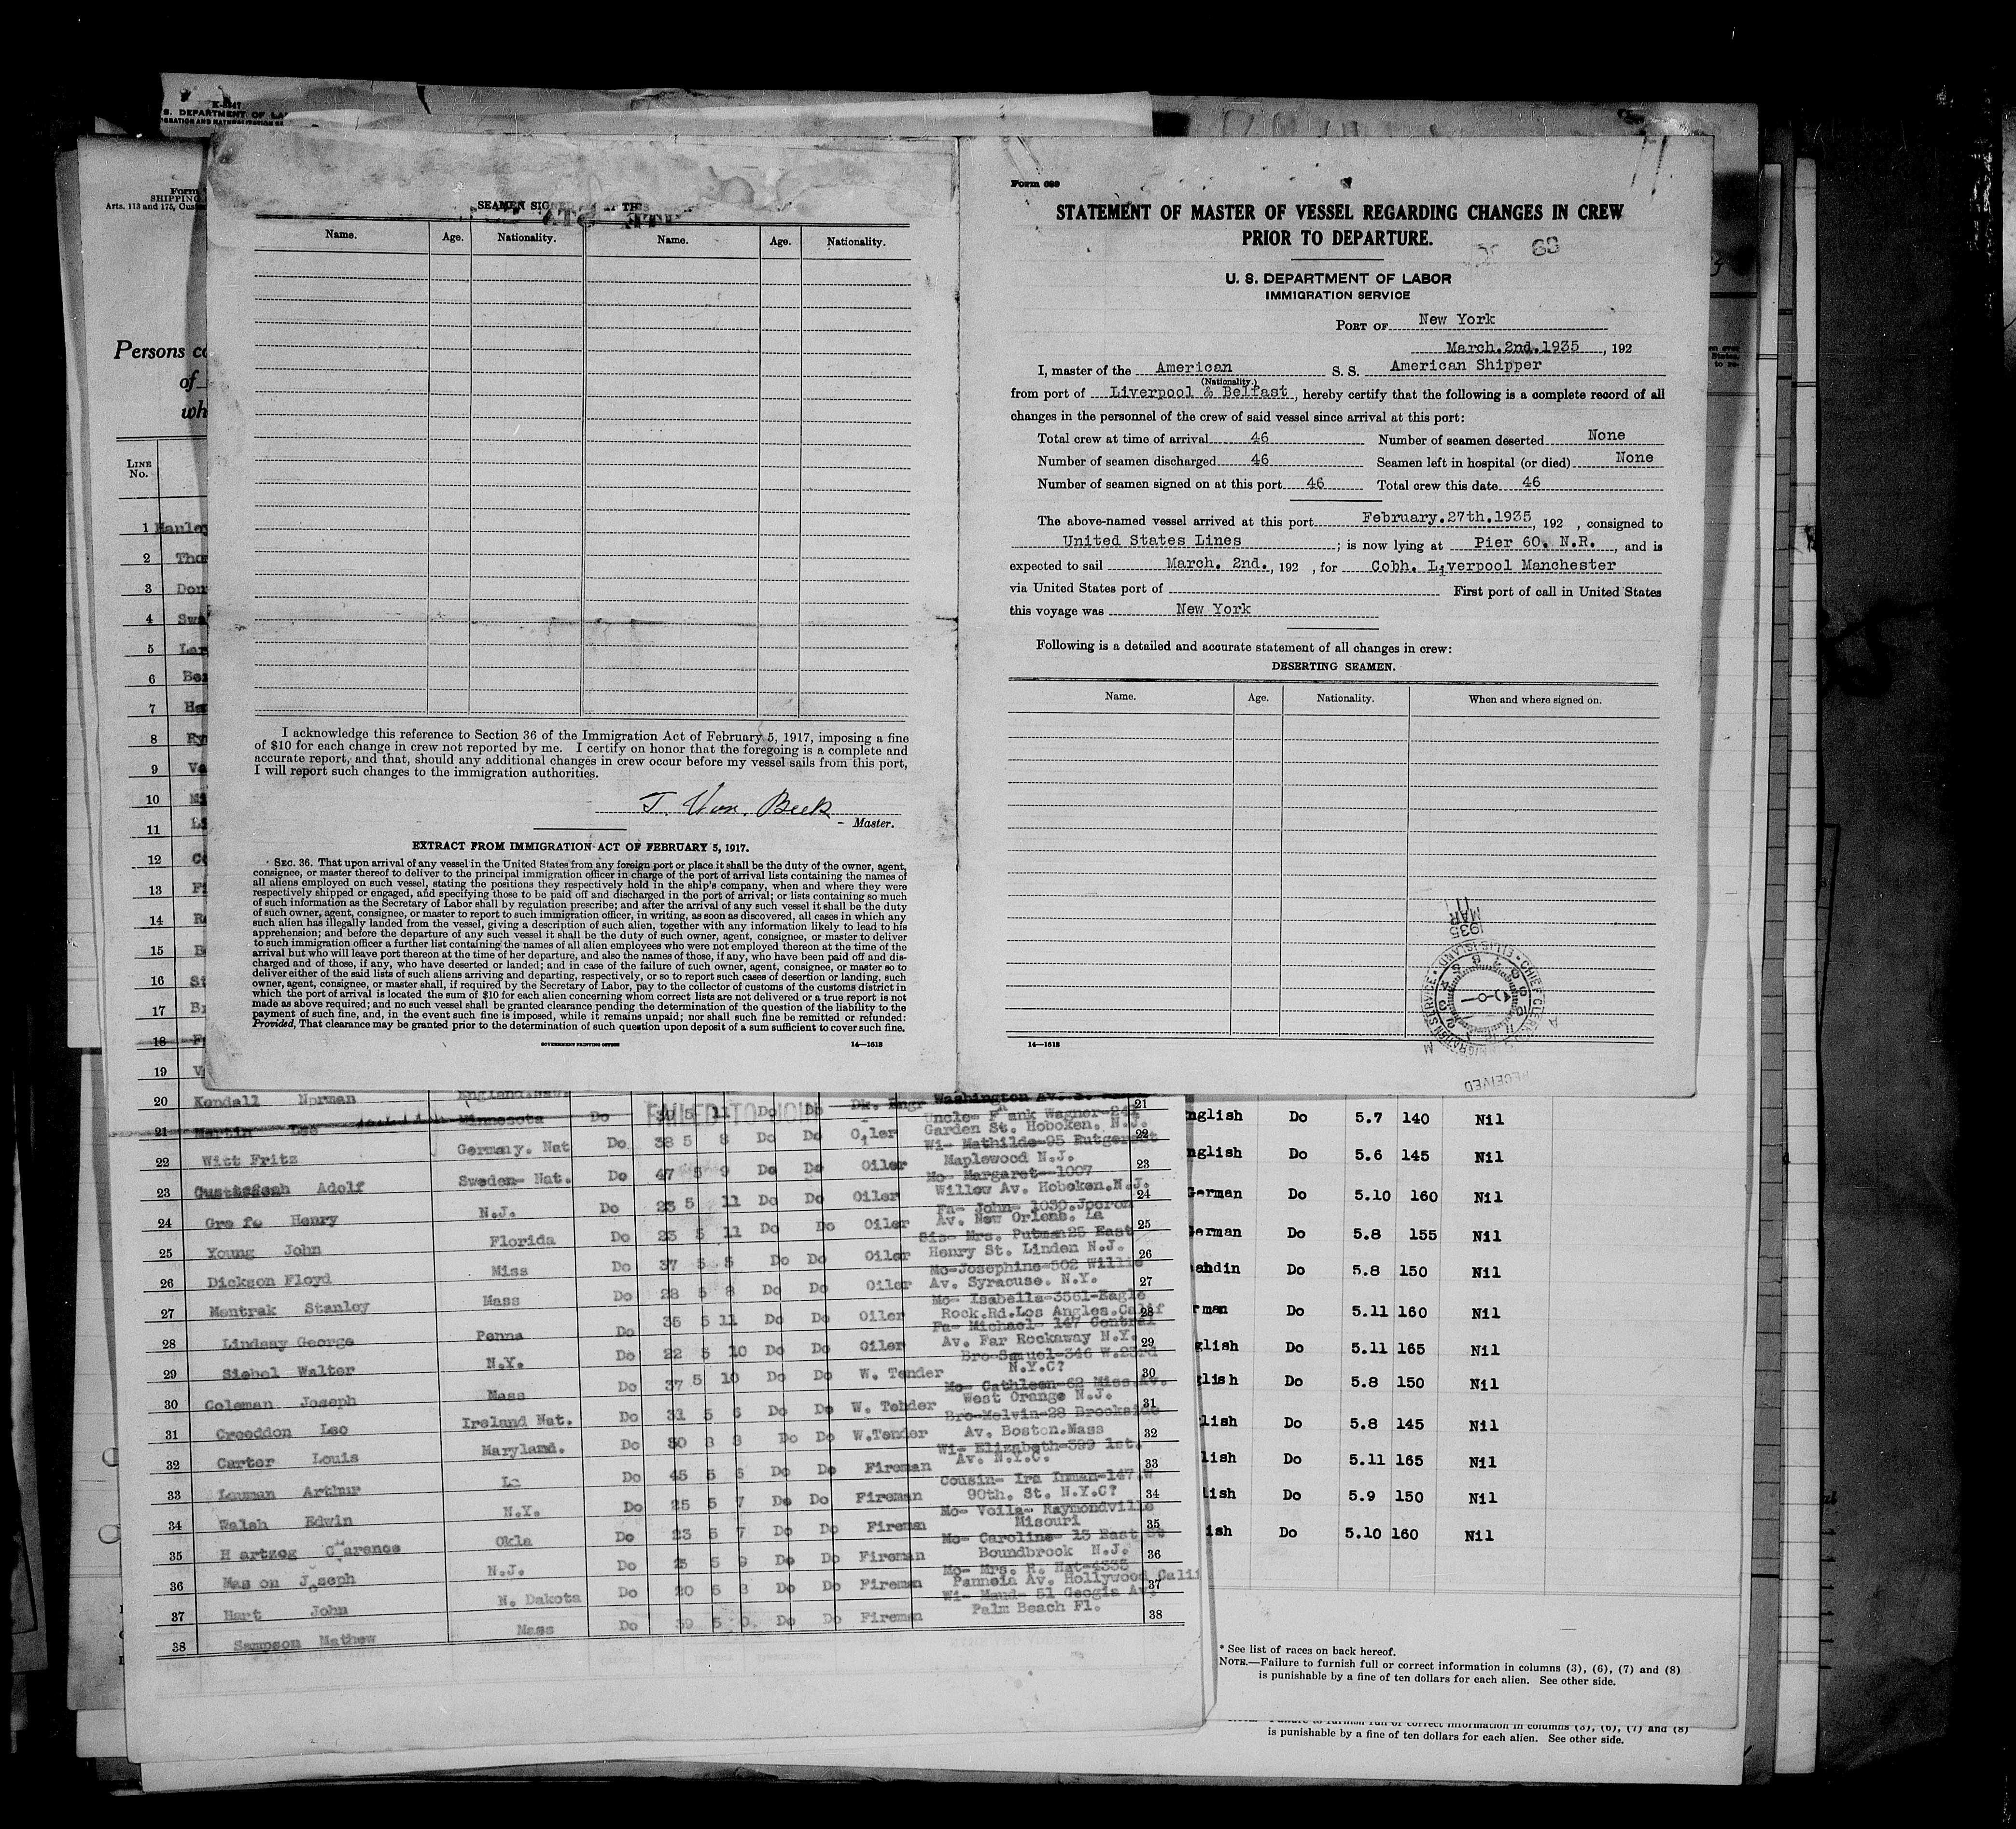 K-5447
S. DEPARTMENT OF LA
GRATION AND NATURALIZATION SE
Form
SHIPPING
Arts. 113 and 175, Cus
Persons co
of
wh
LINE
No.
SEAMEN SIGNED
Name. Age. Nationality. Name. Age. Nationality.
I acknowledge this reference to Section 36 of the Immigration Act of February 5, 1917, imposing a fine
of $10 for each change in crew not reported by me. I certify on honor that the foregoing is a complete and
accurate report, and that, should any additional changes in crew occur before my vessel sails from this port,
I will report such changes to the immigration authorities.
Master.
EXTRACT FROM IMMIGRATION ACT OF FEBRUARY 5, 1917.
SEC. 36. That upon arrival of any vessel in the United States from any foreign port or place it shall be the duty of the owner, agent,
consignee, or master thereof to deliver to the principal immigration officer in charge of the port of arrival lists containing the names of
all aliens employed on such vessel, stating the positions they respectively hold in the ship's company, when and where they were
respectively shipped or engaged, and specifying those to be paid off and discharged in the port of arrival; or lists containing so much
of such information as the Secretary of Labor shall by regulation prescribe; and after the arrival of any such vessel it shall be the duty
of such owner, agent, consignee, or master to report to such immigration officer, in writing, as soon as discovered, all cases in which any
such alien has illegally landed from the vessel, giving a description of such alien, together with any information likely to lead to his
apprehension; and before the departure of any such vessel it shall be the duty of such owner, agent, consignee, or master to deliver
to such immigration officer a further list containing the names of all alien employees who were not employed thereon at the time of the
arrival but who will leave port thereon at the time of her departure, and also the names of those, if any, who have been paid off and dis-
charged and of those, if any, who have deserted or landed; and in case of the failure of such owner, agent, consignee, or master so to
deliver either of the said lists of such aliens arriving and departing, respectively, or so to report such cases of desertion or landing, such
owner, agent, consignee, or master shall, if required by the Secretary of Labor, pay to the collector of customs of the customs district in
which the port of arrival is located the sum of $10 for each alien concerning whom correct lists are not delivered or a true report is not
made as above required; and no such vessel shall be granted clearance pending the determination of the question of the liability to the
payment of such fine, and, in the event such fine is imposed, while it remains unpaid; nor shall such fine be remitted or refunded:
Provided, That clearance may be granted prior to the determination of such question upon deposit of a sum sufficient to cover such fine.
GOVERNMENT PRINTING OFFICE 14—1613
Form 689
STATEMENT OF MASTER OF VESSEL REGARDING CHANGES IN CREW
PRIOR TO DEPARTURE.
69
U. S. DEPARTMENT OF LABOR
IMMIGRATION SERVICE
PORT OF New York
March.2nd.1935, 192
I, master of the American S. S. American Shipper
(Nationality.)
from port of Liverpool & Belfast, hereby certify that the following is a complete record of all
changes in the personnel of the crew of said vessel since arrival at this port:
Total crew at time of arrival 46 Number of seamen deserted None
Number of seamen discharged 46 Seamen left in hospital (or died) None
Number of seamen signed on at this port 46 Total crew this date 46
The above-named vessel arrived at this port February.27th.1935, 192 , consigned to
United States Lines ; is now lying at Pier 60. N.R. , and is
expected to sail March. 2nd., 192 , for Cobh. Liverpool Manchester
via United States port of First port of call in United States
this voyage was New York
Following is a detailed and accurate statement of all changes in crew:
DESERTING SEAMEN.
Name. Age. Nationality. When and where signed on.
MAR 11 1935
CHIEF CLERK ELLIS ISLAND IMMIGRATION SERVICE
RECEIVED
14—1613
1 Harley
2 Tho
3 Don
4 Swa
5 Lar
6
7
8
9
10
11
12
13
14
15
16
17
18
19
20 Kendall Norman
FAILED TO JOIN
21 Martin Leo Minnesota Do Do Do Dk. Engr Washington Av. 21
22 Witt Fritz Germany. Nat Do 38 5 8 Do Do Oiler Garden St. Hoboken. N.J. 22
23 Adolf Sweden- Nat. Do 47 5 9 Do Do Oiler Maplewood N.J. 23
24 Grafe Henry N.J. Do 23 5 11 Do Do Oiler Willow Av. Hoboken.N.J. 24
25 Young John Florida Do 23 5 11 Do Do Oiler Av. New Orlens. La 25
26 Dickson Floyd Miss Do 37 5 5 Do Do Oiler Henry St. Linden N.J. 26
27 Mentrak Stanley Mass Do 28 5 8 Do Do Oiler Av. Syracuse. N.Y. 27
28 Lindsay George Penna Do 35 5 11 Do Do Oiler Rock.Rd.Los Angles.Calif 28
29 Siebel Walter N.Y. Do 22 5 10 Do Do Oiler Av. Far Rockaway N.Y. 29
30 Coleman Joseph Mass Do 37 5 10 Do Do W. Tender N.Y.C? 30
31 Creeddon Leo Ireland Nat. Do 31 5 6 Do Do W. Tender West Orange N.J. 31
32 Carter Louis Maryland. Do Do Do W.Tender Av. Boston.Mass 32
33 Arthur La Do 45 5 6 Do Do Fireman Av. N.Y.C. 33
34 Walsh Edwin N.Y. Do 25 5 7 Do Do Fireman 90th. St. N.Y.C? 34
35 Hartzog Clarence Okla Do 23 5 7 Do Do Fireman Misouri 35
36 Mason Joseph N.J. Do 5 9 Do Do Fireman Boundbrook N.J. 36
37 Hart John N. Dakota Do 20 5 8 Do Do Fireman Pannoia Av. Hollywood Cali 37
38 Sampson Mathew Mass Do 39 5 Do Do Fireman Palm Beach Fl. 38
nglish Do 5.7 140 Nil
nglish Do 5.6 145 Nil
German Do 5.10 160 Nil
German Do 5.8 155 Nil
Do 5.8 150 Nil
rman Do 5.11 160 Nil
glish Do 5.11 165 Nil
glish Do 5.8 150 Nil
lish Do 5.8 145 Nil
lish Do 5.11 165 Nil
lish Do 5.9 150 Nil
ish Do 5.10 160 Nil
* See list of races on back hereof.
NOTE.—Failure to furnish full or correct information in columns (3), (6), (7) and (8)
is punishable by a fine of ten dollars for each alien. See other side.
is punishable by a fine of ten dollars for each alien. See other side.